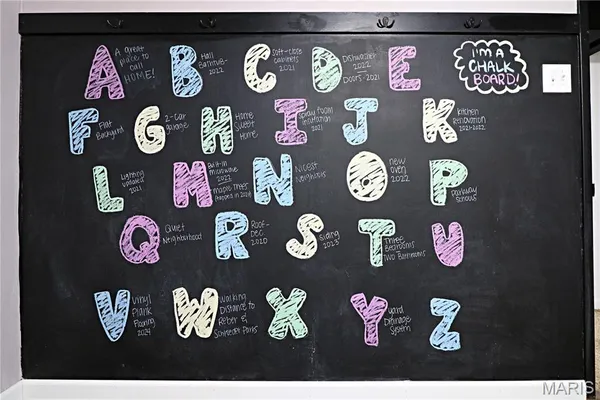 A A great place to call HOME!
B Hall Bathroom- 2022
C Soft-close cabinets 2021
D Dishwasher 2022 Doors-2021
E
I'M A CHALK BOARD!
F Flat Backyard
G 2-Car garage
H Home Sweet Home
I Spray Foam Insulation 2021
J
K Kitchen renovation 2021-2022
L Lighting updated 2021
M Built-in microwave 2022 Maple Tree
N Nicest Neighbors
O New oven 2022
P Parkway Schools
Q Quiet Neighborhood
R Roof- DEC. 2020
S Siding 2023
T Three Bedrooms Two Bathrooms
U
V Vinyl Plank Flooring 2024
W Walking Distance to & Parks
X
Y Yard Drainage System
Z
MARIS